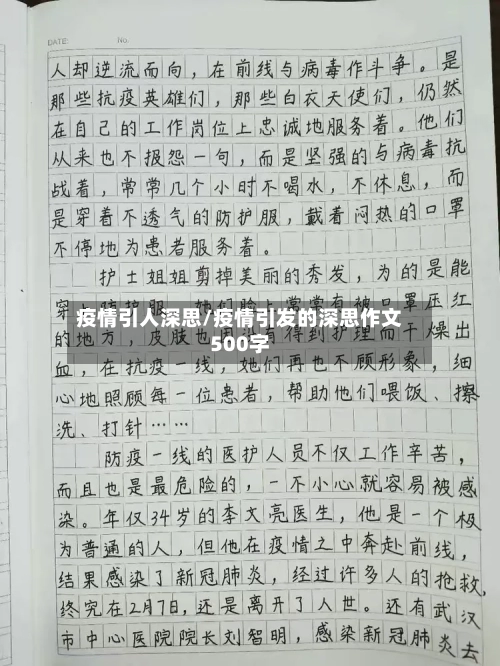 DATE No.
人却逆流而向，在前线与病毒作斗争。是
那些抗疫英雄们，那些白衣天使们，仍然
在自己的工作岗位上忠诚地服务着。他们
从来也不报怨一句，而是坚强的与病毒抗
战着，常常几个小时不喝水，不休息，而
是穿着不透气的防护服，戴着闷热的口罩
不停地为患者服务着。
护士姐姐剪掉美丽的秀发，为的是能
穿上防护服，她们脸上常常有被口罩压红
疫情引人深思/疫情引发的深思作文
500字
的地方，皮肤也因有得到护理而干燥出
血，在抗疫一线，她们再也不顾形象，细
心地照顾每一位患者，帮助他们喂饭、擦
洗、打针……
防疫一线的医护人员不仅工作辛苦，
而且也是最危险的，一不小心就容易被感
染。年仅34岁的李文亮医生，他是一个极
为普通的人，但他在疫情之中奔赴前线，
结果感染了新冠肺炎，经过许多人的抢救，
终究在2月7日，还是离开了人世。还有武汉
市中心医院院长刘智明，感染新冠肺炎去